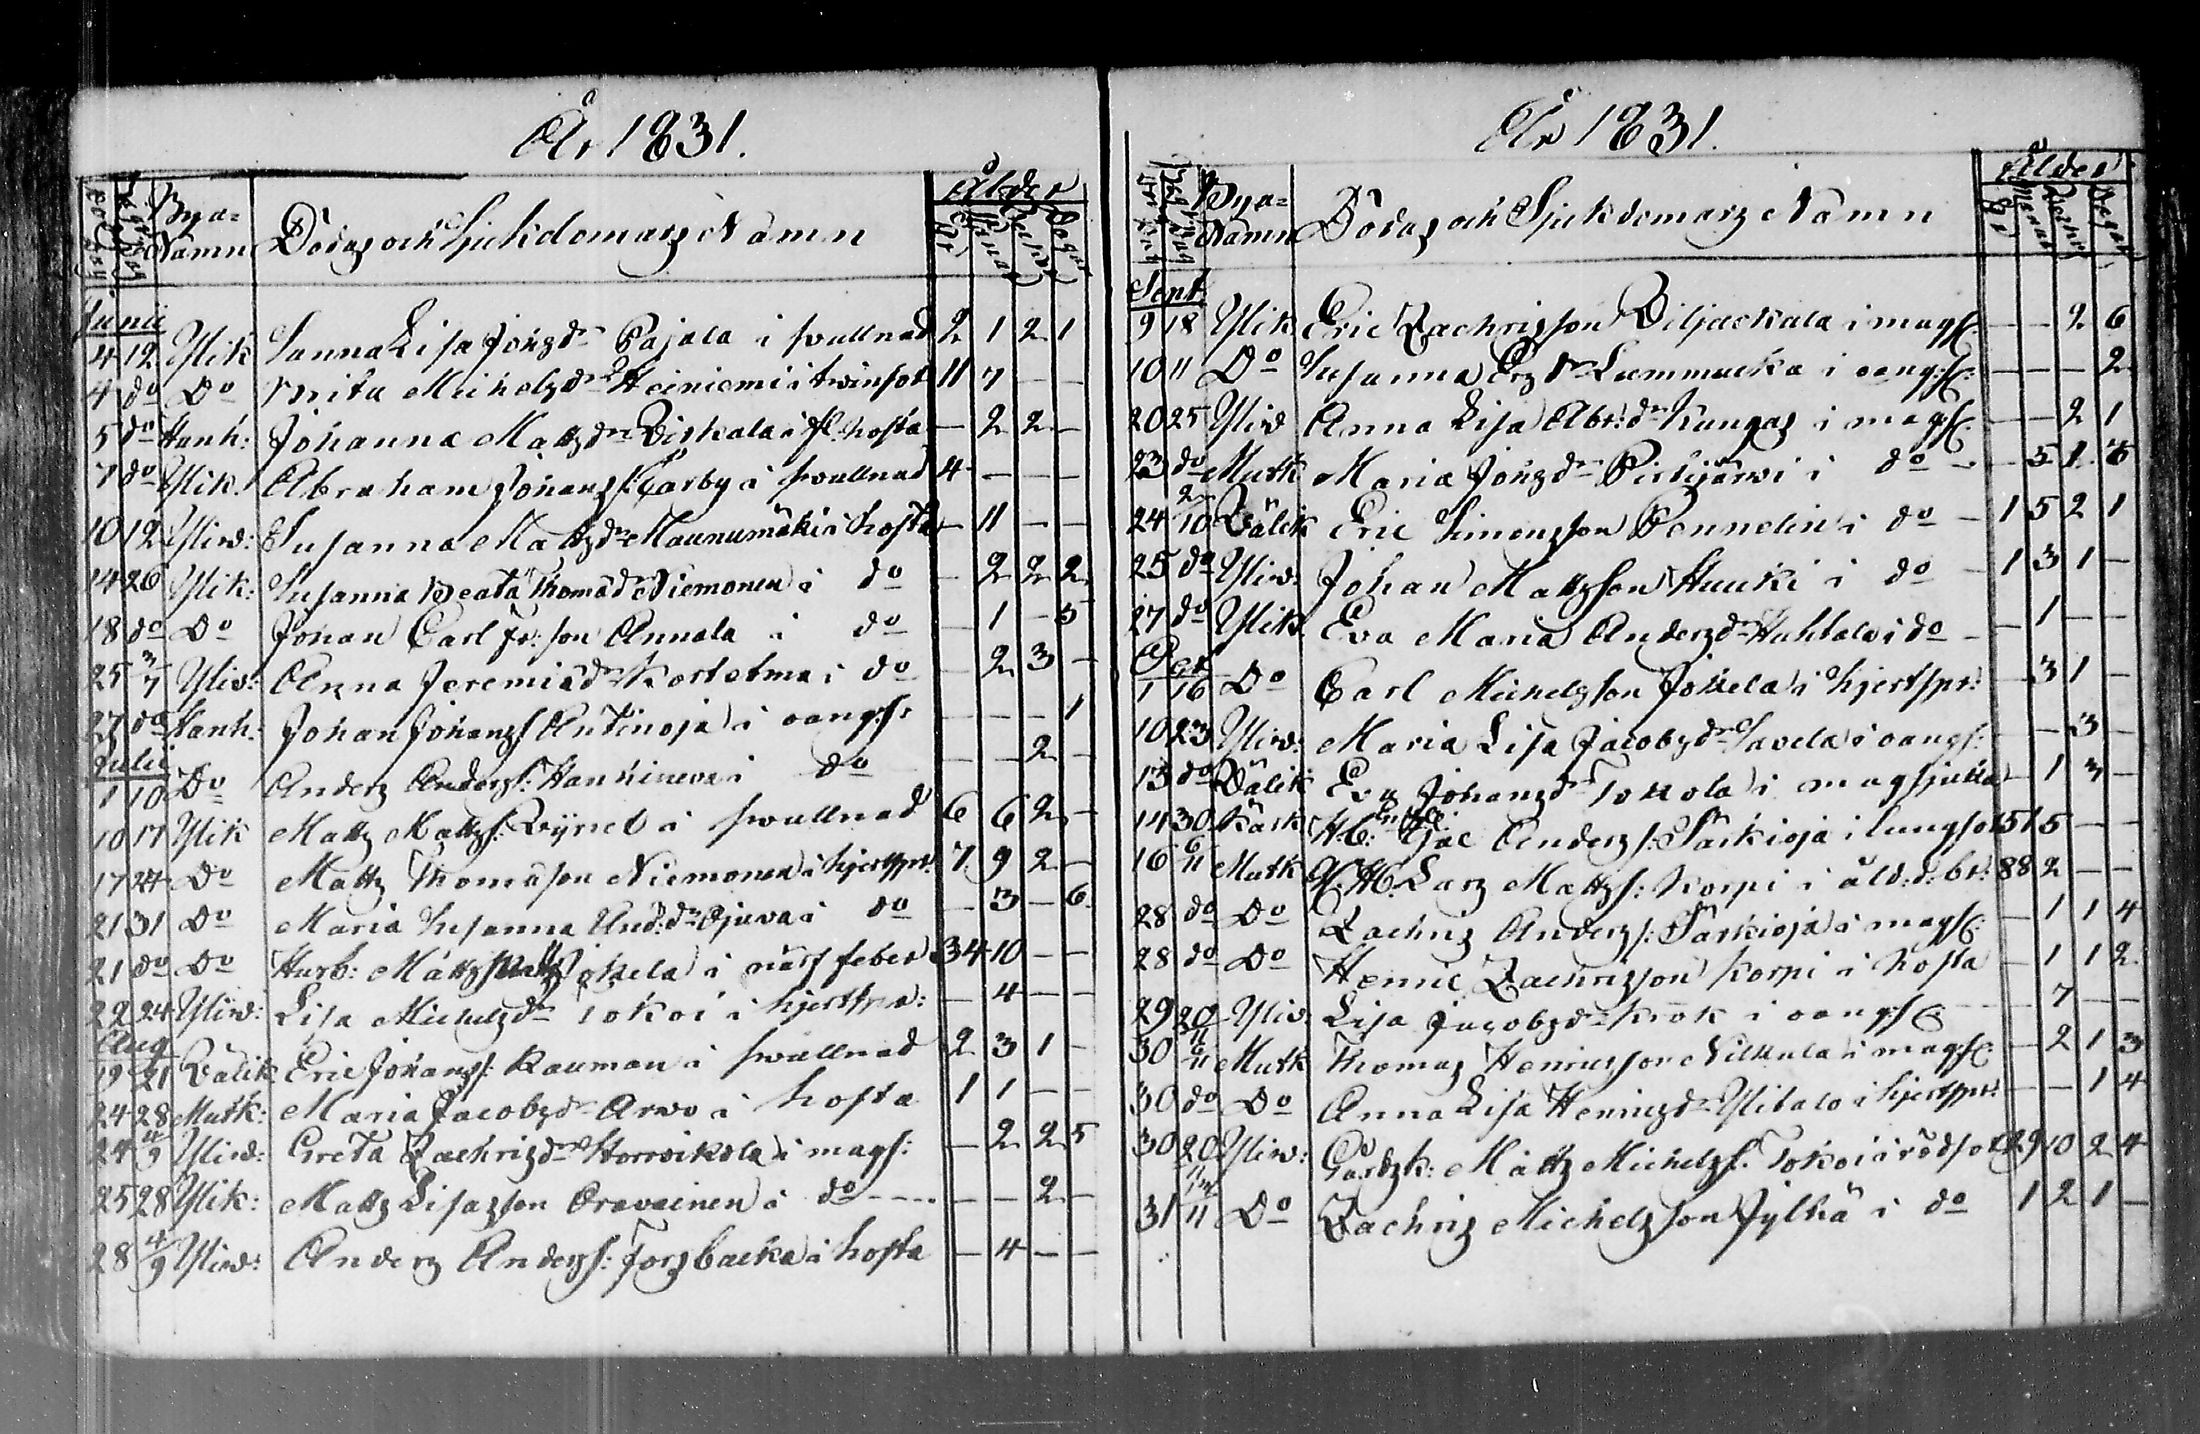 År 1831.
Bya= Namn Dödas och Sjukdomars Namn Ålder År Månar Veckor Dagar
Junii
4 12 Ylik Sanna Lisa Johsdr Pajala i svullnad 2 1 2 1
4 do Do Brita Michelsdr Heiniemi i tvinsot 11 7 — —
5 do Hanh: Johanna Mattsdr Viskala i st. hosta — 2 2 —
7 do Ylik. Abraham Johanss: Carby i svullnad 4 — — —
10 12 Yliv: Susanna Mattsdr Maunumäki i hosta — 11 — —
14 26 Ylik: Susanna Beata Thomædr Niemonen i do — 2 2 2
18 do Do Johan Carl Fr: son Annala i do — 1 — 5
25 3/7 Yliv: Anna Jeremiædr Kortetma i do — 2 3 —
27 do Hanh: Johan Johanss Antinoja i oangs: — — — 1
Julii
1 10 Do Anders Anderss: Hanhineva i do — — 2 —
10 17 Ylik Matts Mattss: Byrsel i svullnad 6 6 2 —
17 24 Do Matts Thomæson Niemonen i hjertspr: 7 9 2 —
21 31 Do Maria Susanna And:dr Ojuva i do — 3 — 6
21 do Do Husb: Matts Matts Jokela i närffeber 34 10 — —
22 24 Yliv: Lisa Michelsdr Tokoi i hjertspr: — 4 — —
Aug
19 21 Välik Eric Johanss: Rauman i svullnad 2 3 1 —
24 28 Mutk: Maria Jacobsdr Arvo i hosta 1 1 — —
24 4/9 Yliv: Greta Zachrisdr Horroikola i mags: — 2 2 5
25 28 Ylik: Matts Lisasson Oravainen i do — — 2 —
28 4/9 Yliv: Anders Anderss: Forsbacka i hosta — 4 — —
År 1831.
Bya= Namn Dödas och Sjukdomars Namn Ålder År Månar Veckor Dagar
Sept
9 18 Ylik Eric Zachrisson Viljackala i mags: — — 2 6
10 11 Do Susanna Ersdr Lummucka i oangs: — — — 2
20 25 Yliv Anna Lisa Abr:dr Kangas i mags: — — 2 1
23 do Mutk Maria Johsdr Pirtijärvi i do — 5 1 5
24 2/10 Välik Eric Simonsson Pennelin i do — 1 5 2 1
25 do Yliv: Johan Mattsson Huuki i do — 1 3 1 —
27 do Ylik Eva Maria Andersdr Huhtala i do — 1 — —
Oct
1 16 Do Carl Michelsson Jokela i hjertspr: — 3 1 —
10 23 Yliv: Maria Lisa Jacobsdr Savela i oangs: — — 3 —
13 do Välik Eva Johansdr Tokkola i magsjuka — 1 3 —
14 30 Kärk H.b: Enkl. Isac Anderss: Särkioja i lungsot 51 5 — —
16 6/11 Mutk Lars Mattss: Korpi i åld:d: br: 88 2 — —
28 do Do Zachris Anderss: Särkioja i mags: — 1 1 4
28 do Do Henric Zachrisson Korpi i hosta — 1 1 2
29 20/11 Yliv: Lisa Jacobsdr Krok i oangs: — 7 — —
30 6/11 Mutk Thomas Henricsson Nikkula i mags: — 2 1 3
30 do Do Anna Lisa Henricsdr Ylitalo i hjertspr: — — 1 4
30 20/11 Yliv: Gårdsk: Matts Michelss. Tokoi i rödsot 29 10 2 4
31 Do Zachris Michelsson Jylhä i do 1 2 1 —